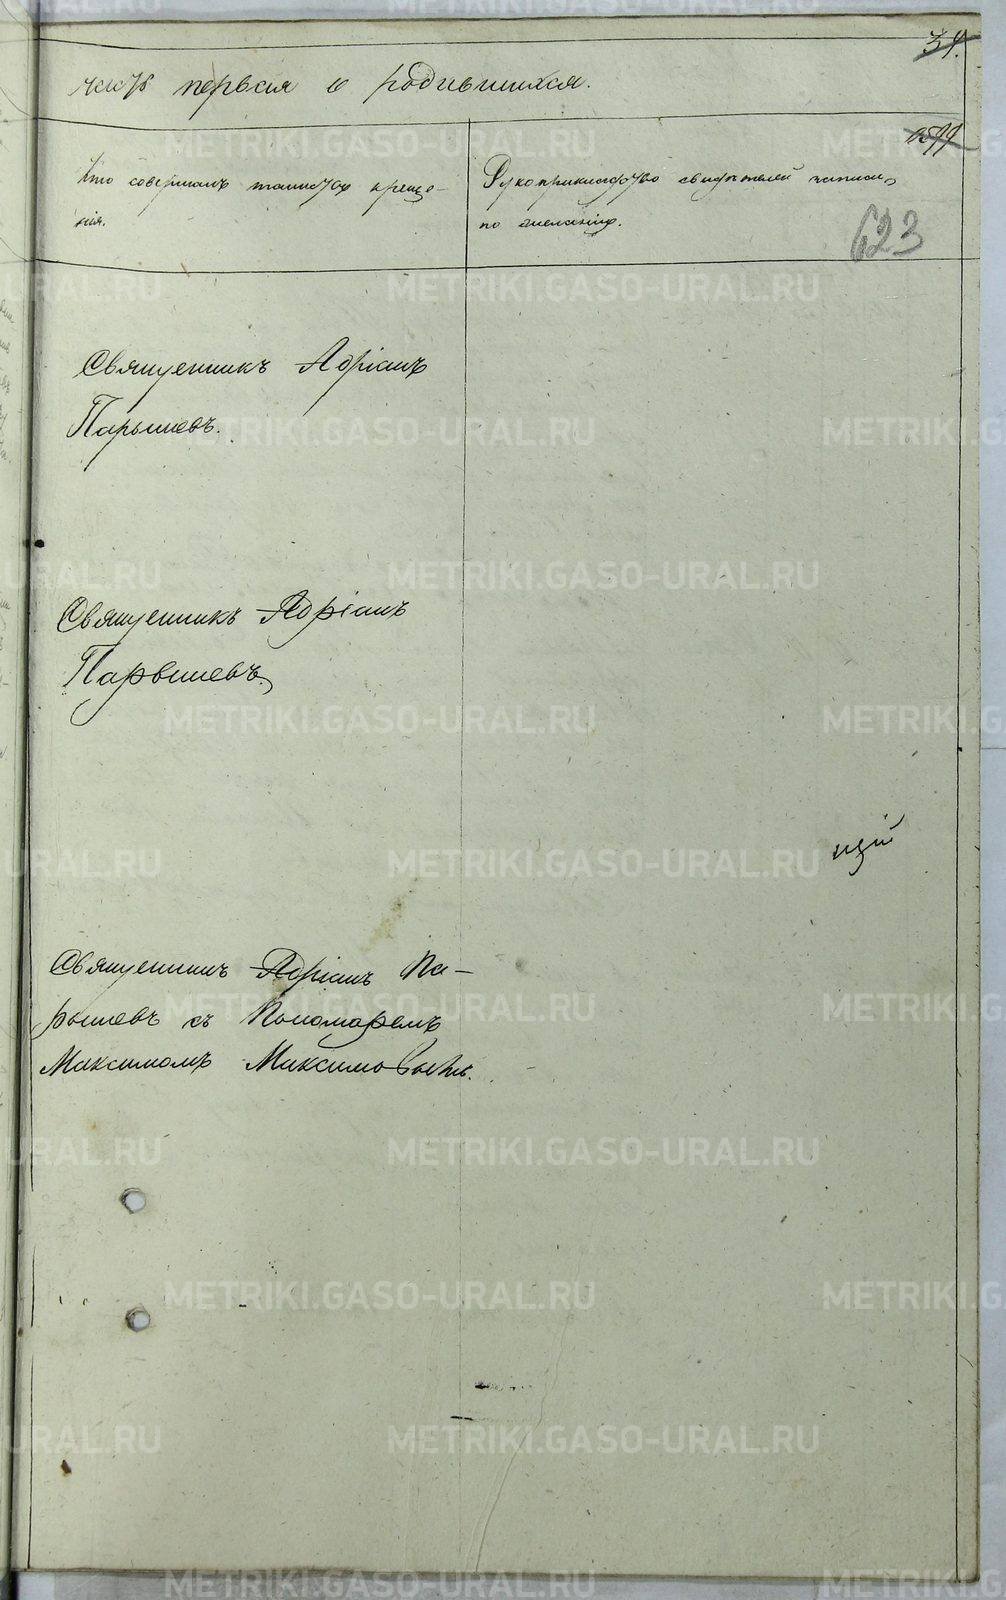 34.
часть первая о родившихся.
599
Кто совершалъ таинство креще-
нія.
Рукоприкладство свидѣтелей записи
по желанію.
623
Священникъ Адріанъ
Парышевъ.
Священникъ Адріанъ
Парышевъ.
щій
Священникъ Адріанъ Па-
рышевъ съ Пономаремъ
Максимомъ Максимовымъ.
METRIKI.GASO-URAL.RU